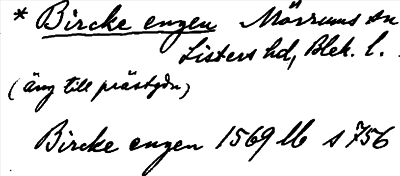 * Bircke engen Mörrums sn
Listers hd, Blek. l.
(äng till prästgdn)
Bircke engen 1569 lb s 756